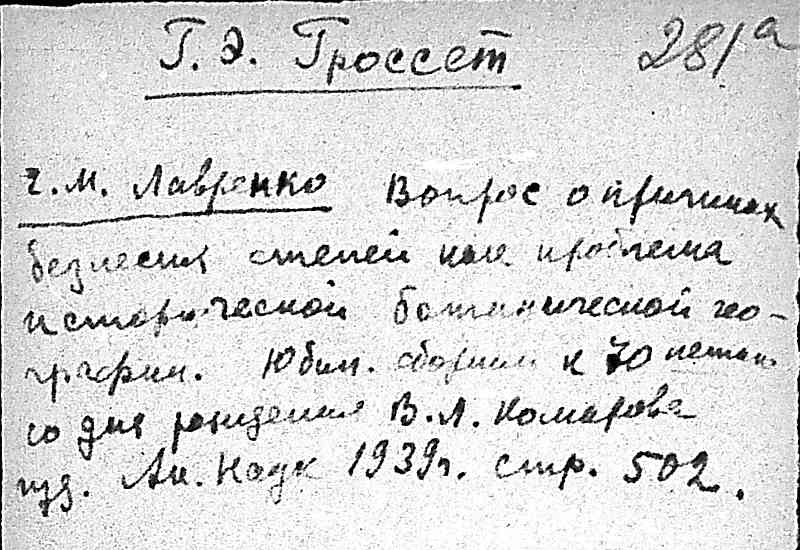 Г. Э. Гроссет 281а
Е. М. Лавренко Вопрос о причинах
безлесия степей как проблема
исторической ботанической гео-
графии. Юбил. сборник к 70 летию
со дня рождения В. Л. Комарова
изд. Ак. Наук 1939г. стр. 502.